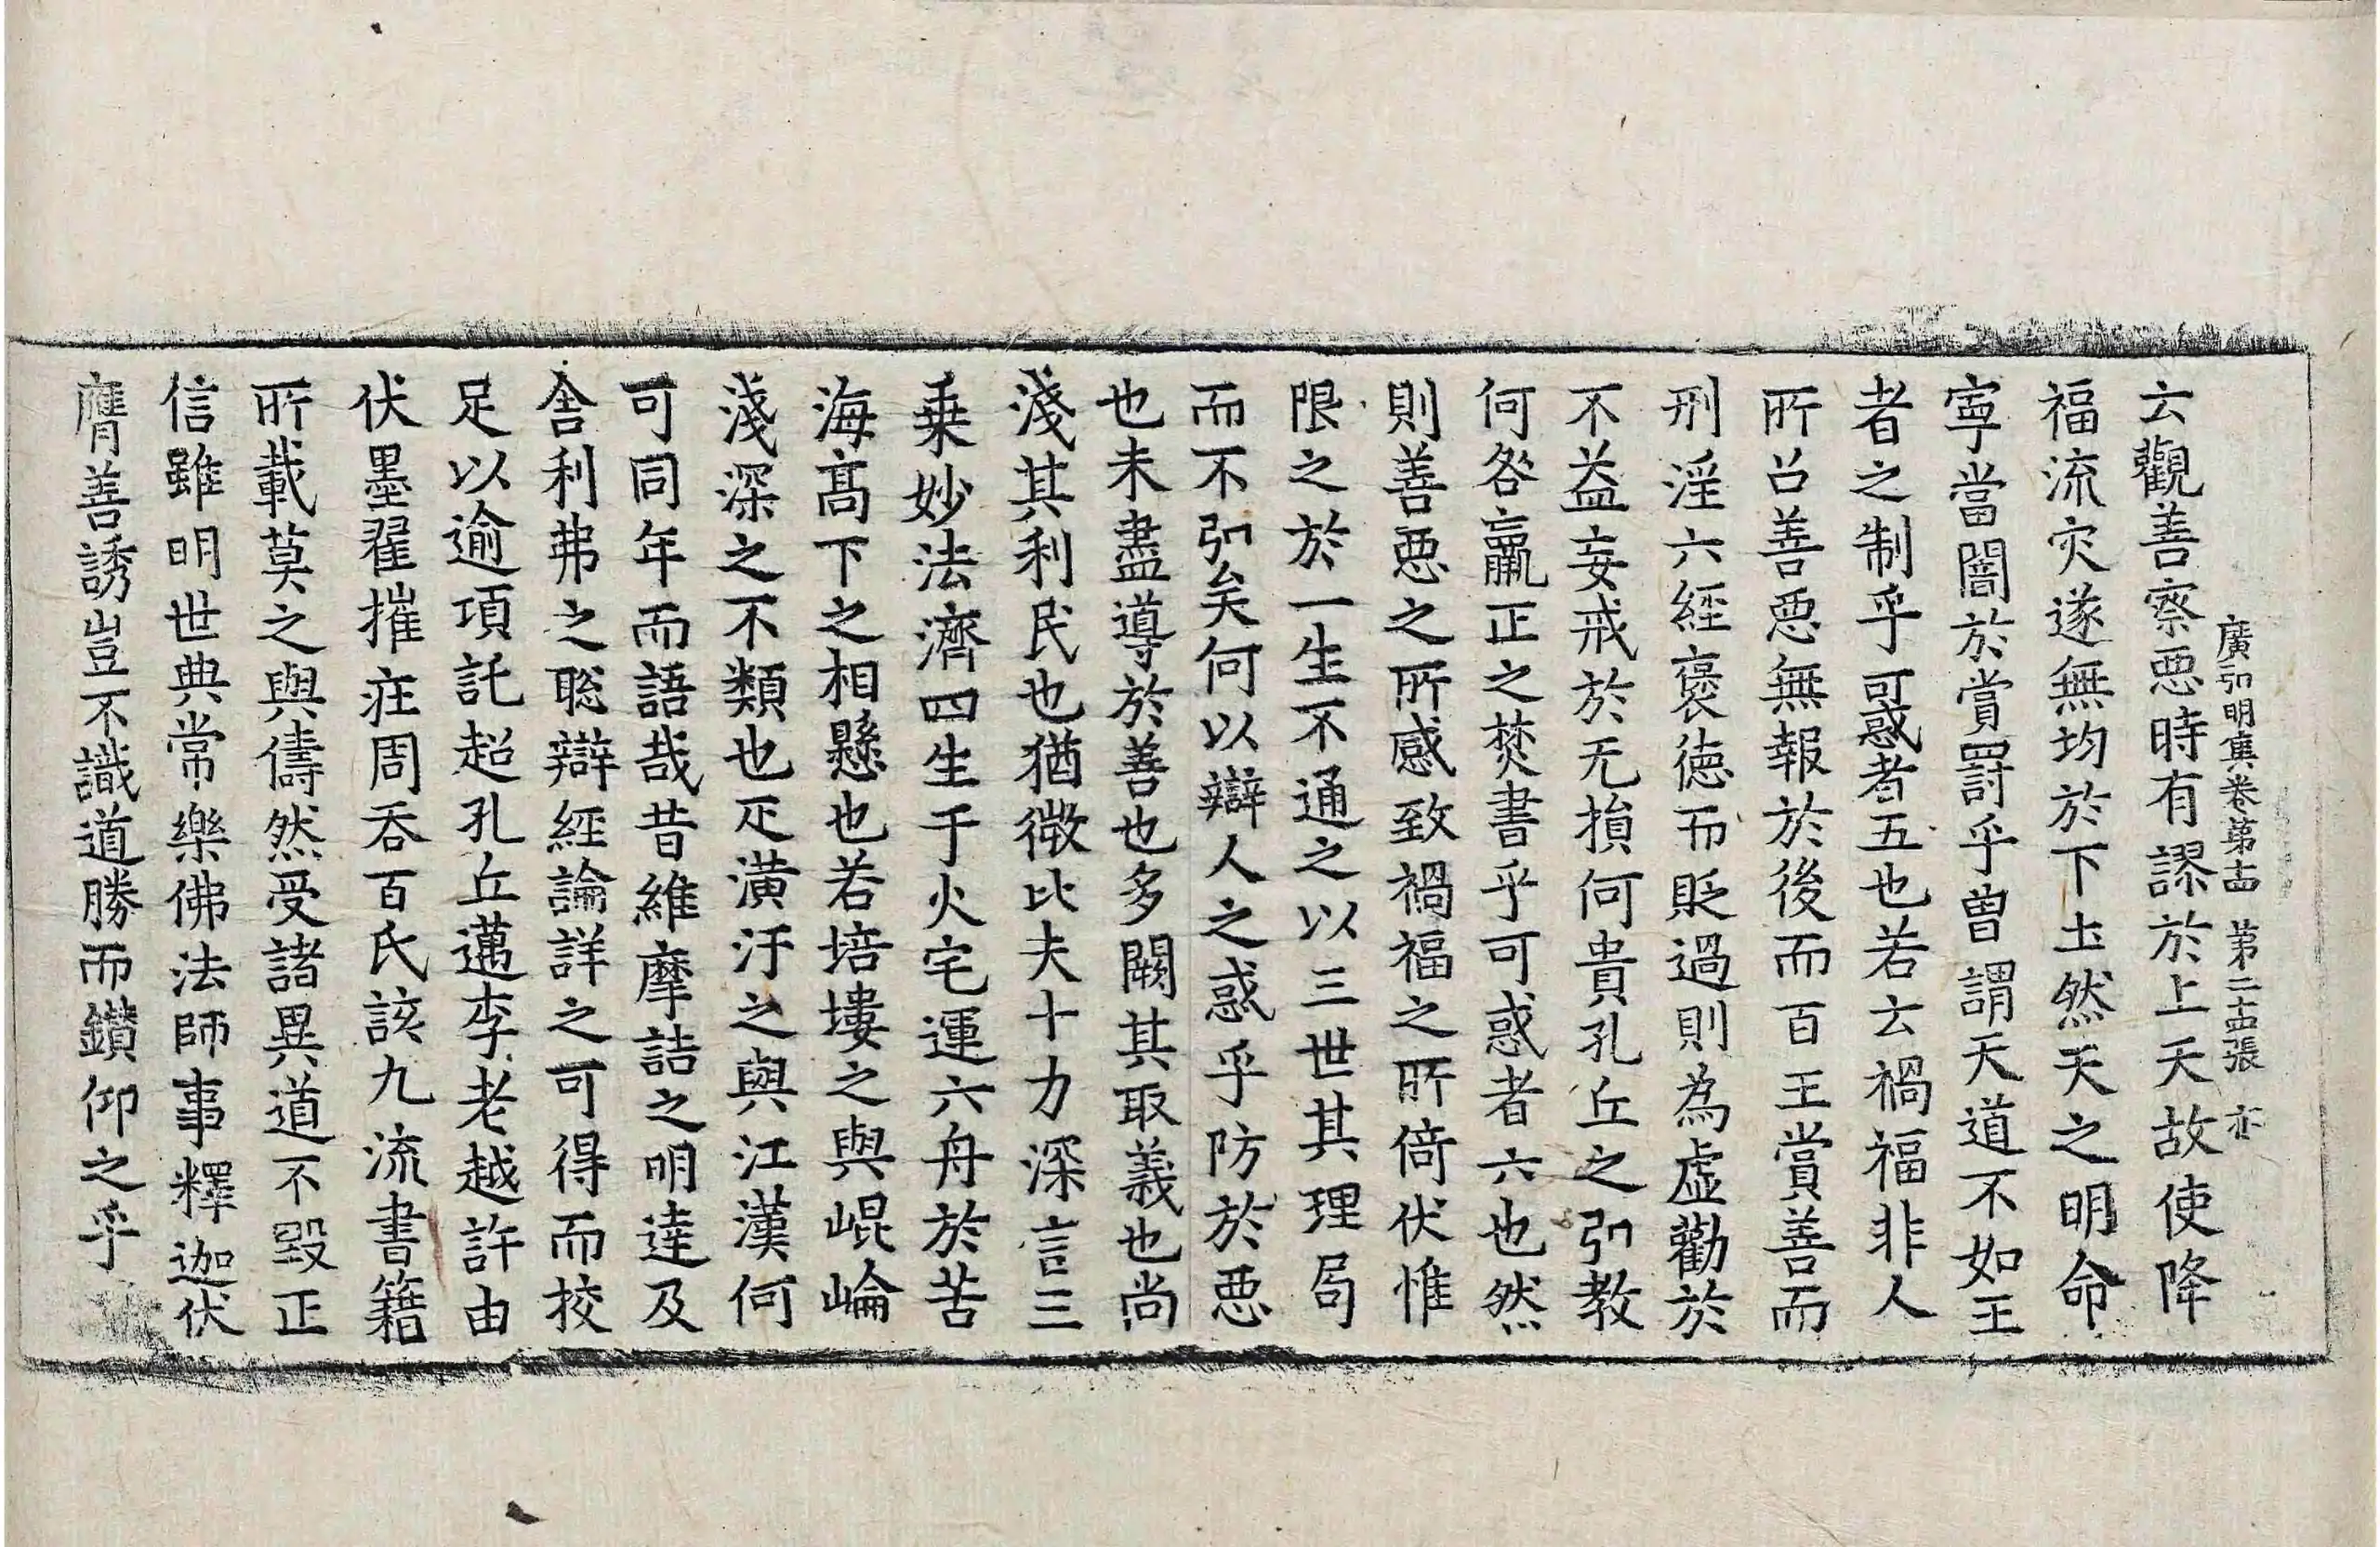 廣弘明集卷第十四 第二十四張 亦
云觀善察惡時有謬於上天故使降
福流灾遂無均於下土然天之明命
寧當闇於賞罸乎曽謂天道不如王
者之制乎可惑者五也若云禍福非人
所召善惡無報於後而百王賞善而
刑淫六經褒德而貶過則為虛勸於
不益妄戒於无損何貴孔丘之弘教
何咎嬴正之焚書乎可惑者六也然
則善惡之所感致禍福之所倚伏惟
限之於一生不通之以三世其理局
而不弘矣何以辯人之惑乎防於惡
也未盡導於善也多闕其取義也尚
淺其利民也猶微比夫十力深言三
乗妙法濟四生于火宅運六舟於苦
海髙下之相懸也若培塿之與崐崘
淺深之不類也疋潢汙之與江漢何
可同年而語哉昔維摩詰之明達及
舍利弗之聡辯經論詳之可得而挍
足以逾項託超孔丘邁李老越許由
伏墨翟摧莊周吞百氏該九流書籍
所載莫之與儔然受諸異道不毀正
信雖明世典常樂佛法師事釋迦伏
膺善誘豈不識道勝而鑚仰之乎